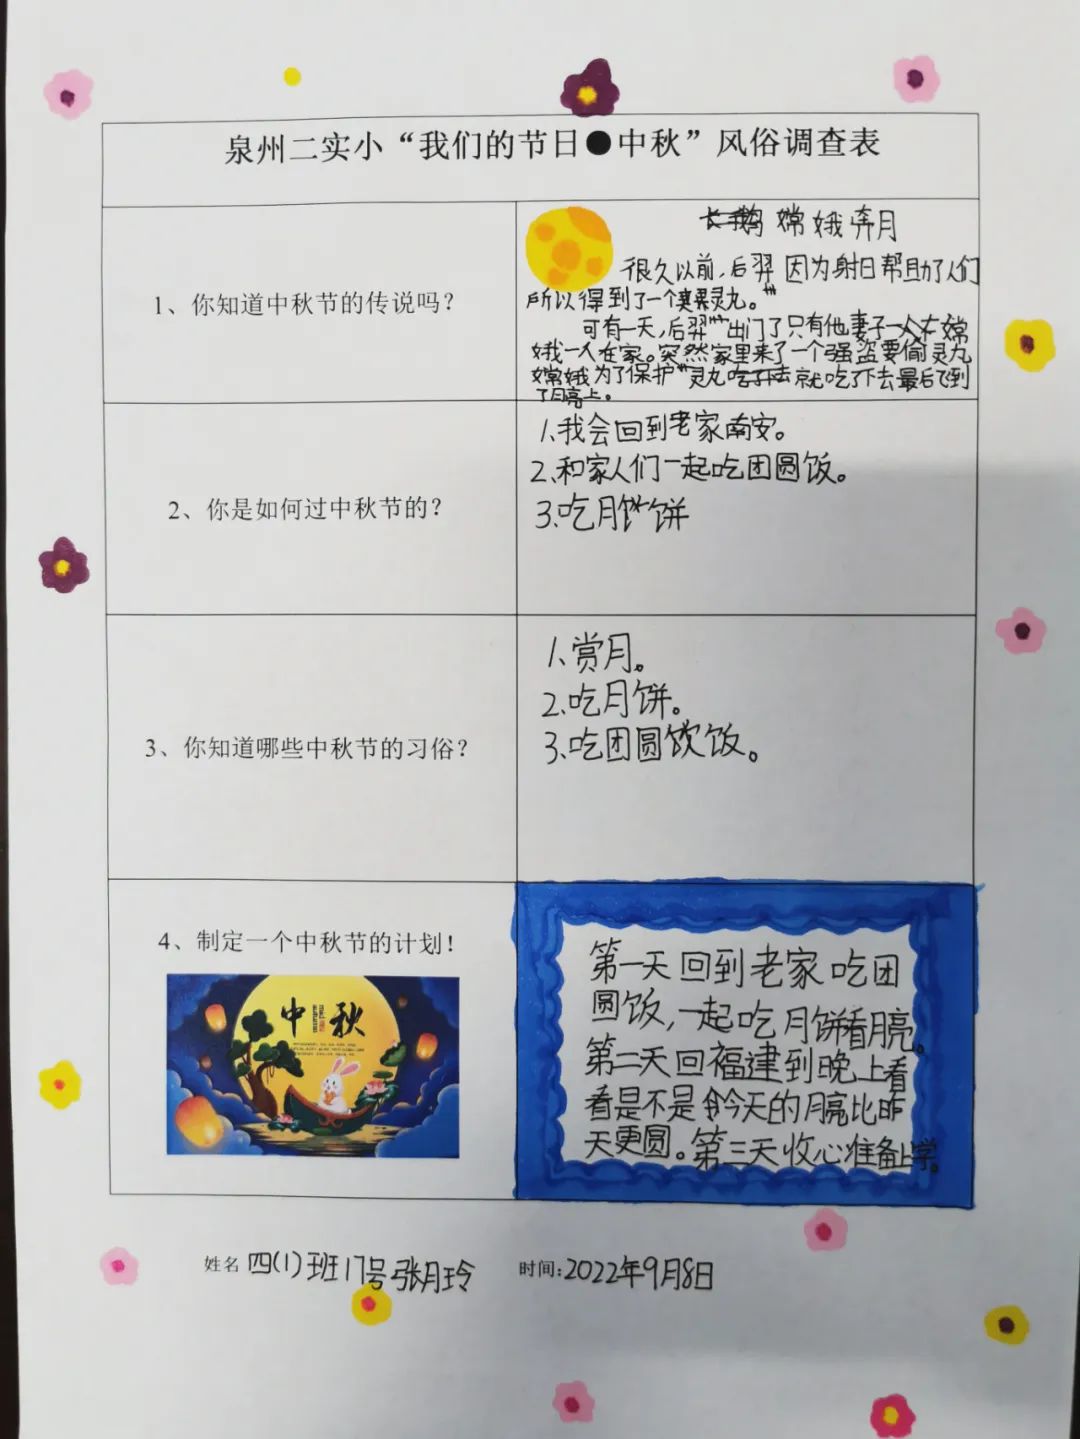 泉州二实小“我们的节日●中秋”风俗调查表
1、你知道中秋节的传说吗?
嫦娥奔月
很久以前,后羿因为射日帮助了人们
所以得到了一个灵丸。
可有一天,后羿出门了只有他妻子嫦
娥一人在家。突然家里来了一个强盗要偷灵丸
嫦娥为了保护灵丸就吃了下去最后飞到
了月亮上。
2、你是如何过中秋节的?
1.我会回到老家南安。
2.和家人们一起吃团圆饭。
3.吃月饼
3、你知道哪些中秋节的习俗?
1.赏月。
2.吃月饼。
3.吃团圆饮饭。
4、制定一个中秋节的计划!
中秋
第一天回到老家吃团
圆饭,一起吃月饼看月亮。
第二天回福建到晚上看
看是不是今天的月亮比昨
天更圆。第三天收心准备上学。
姓名 四(1)班17号张月玲
时间:2022年9月8日